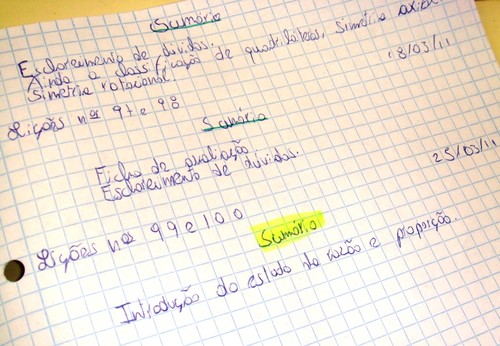 Sumário
Esclarecimento de dúvidas.
Ainda a classificação de quadriláteros, simetria axial
Simetria rotacional.
18/03/11
Lições nºs 97 e 98
Sumário
Ficha de avaliação
Esclarecimento de dúvidas.
25/03/11
Lições nºs 99 e 100
Sumário
Introdução do estudo da razão e proporção.